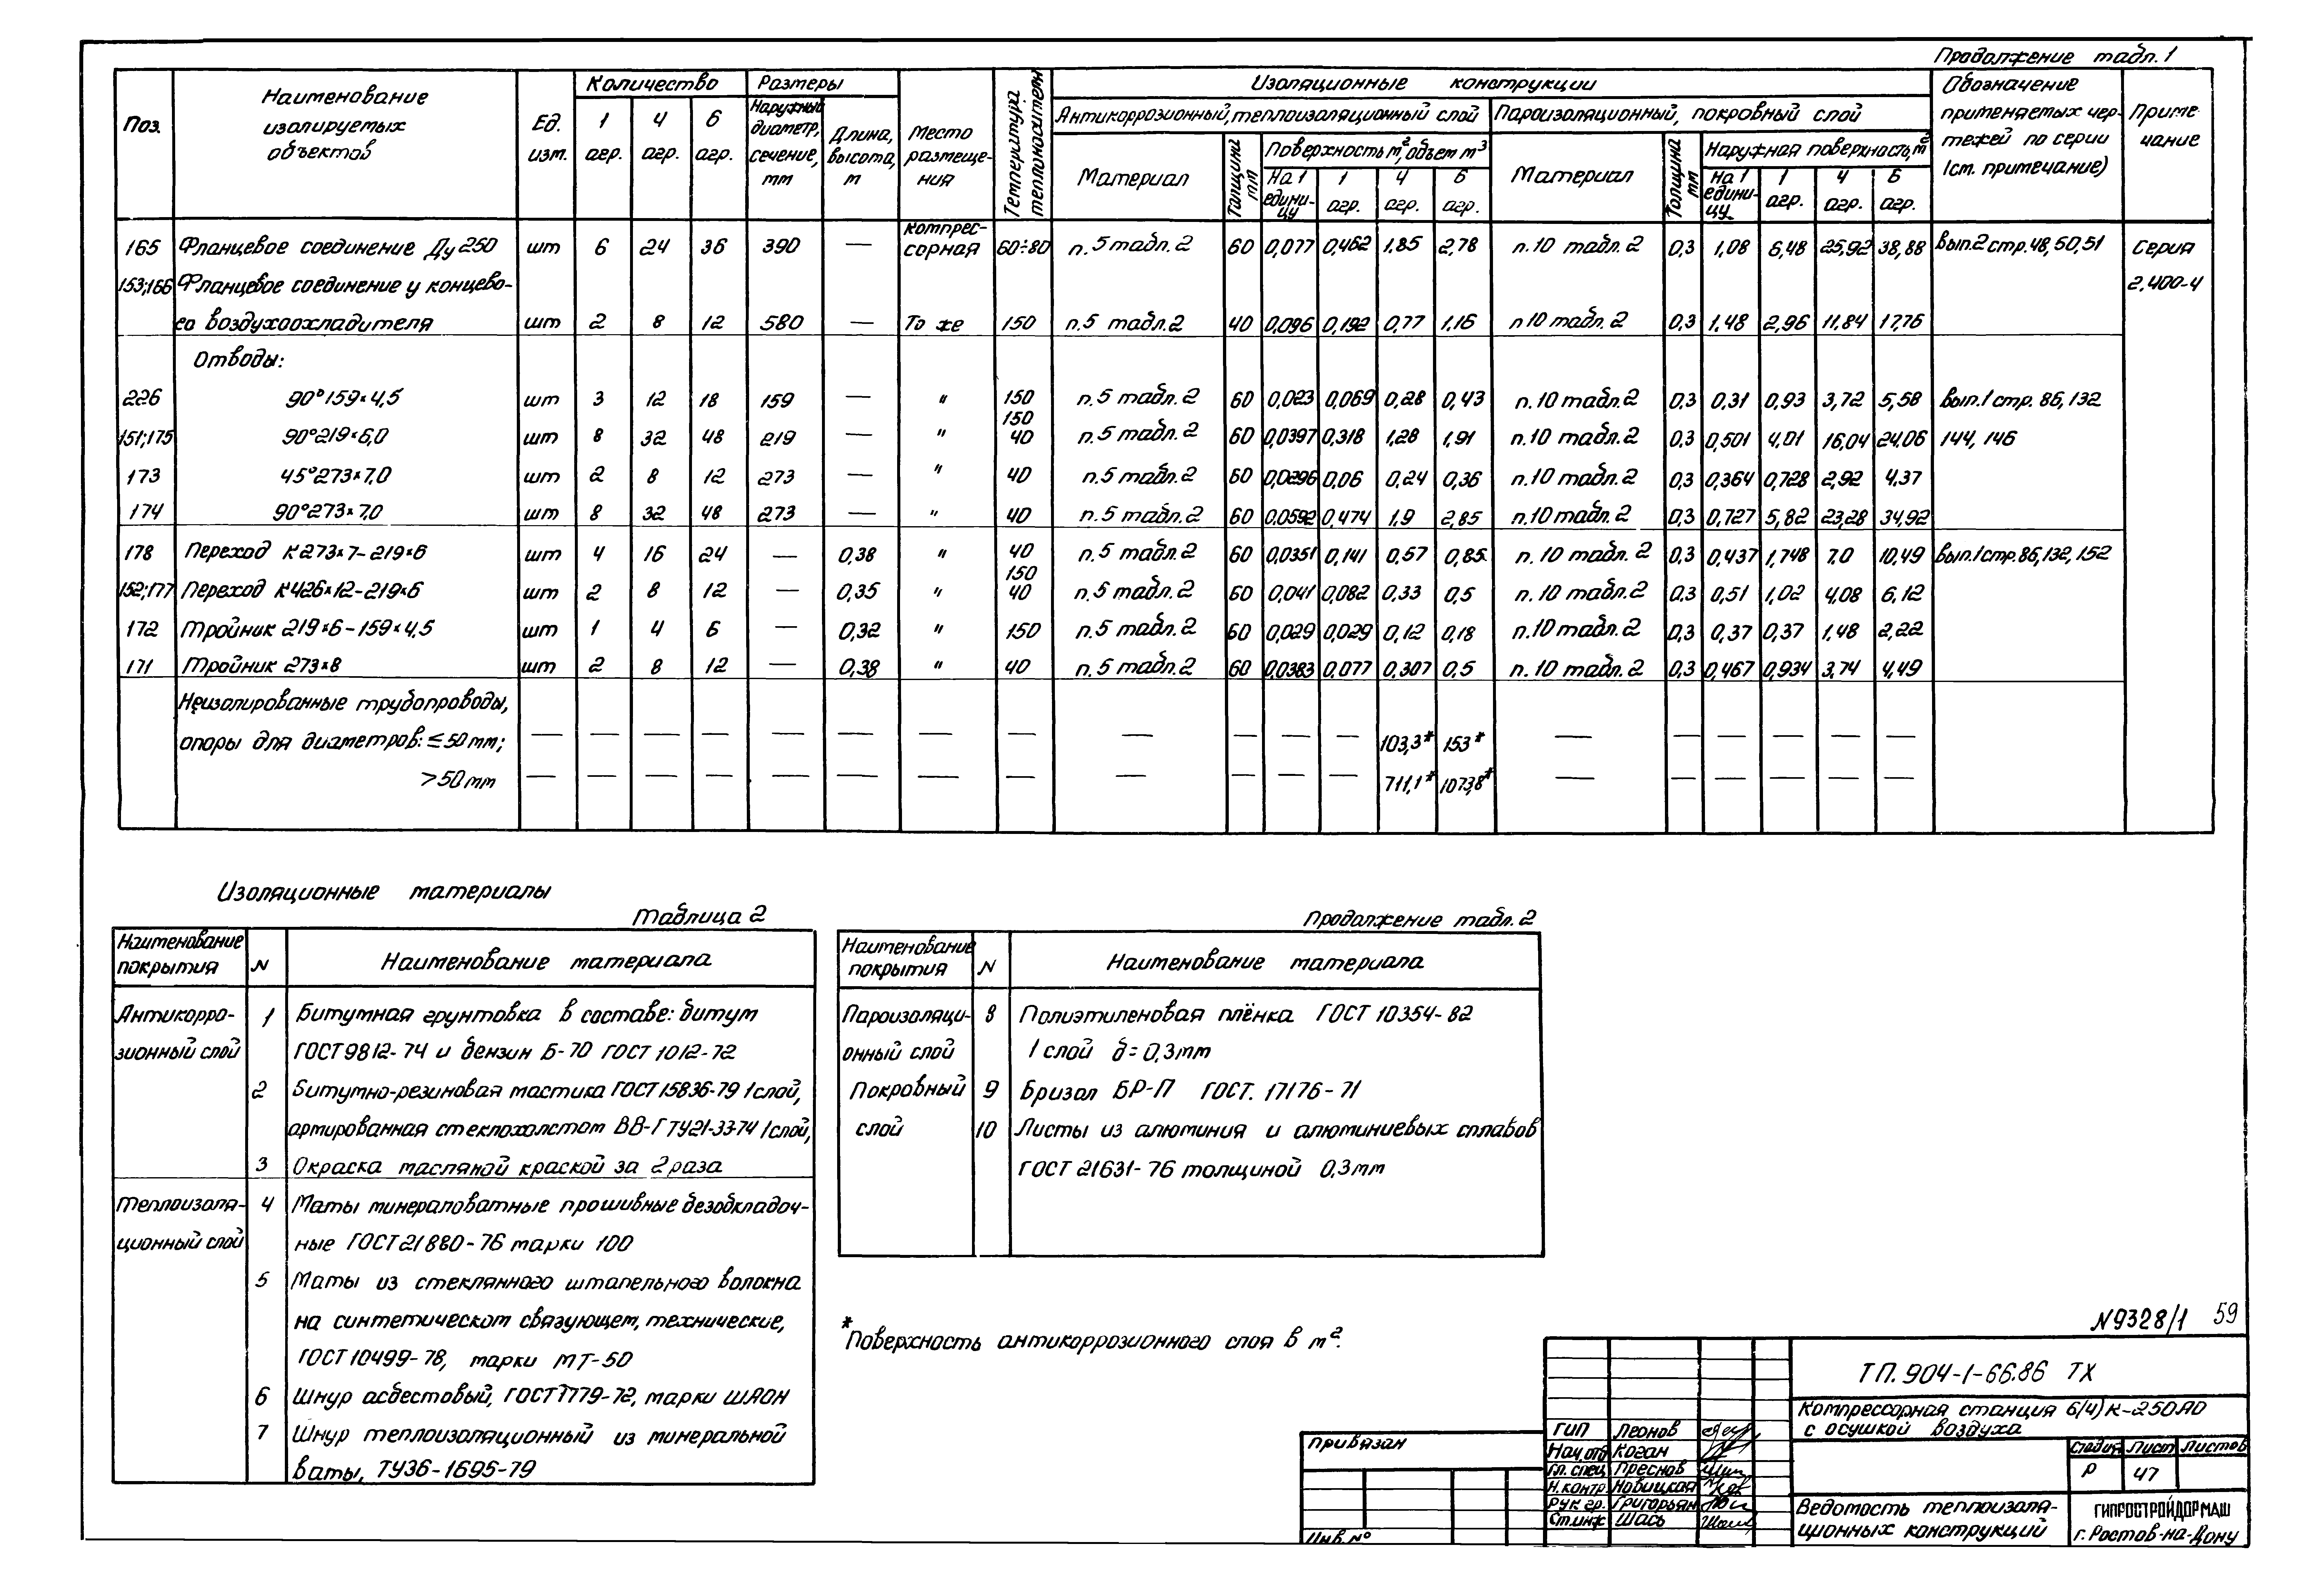 Продолжение табл. 1
Поз. Наименование изолируемых объектов Ед. изм. Количество 1 агр. 4 агр. 6 агр. Размеры Наружный диаметр, сечение, mm Длина, высота, m Место размещения Температура теплоносителя Изоляционные конструкции Обозначение применяемых чертежей по серии (см. примечание) Примечание
Антикоррозионный, теплоизоляционный слой Пароизоляционный, покровный слой
Материал Толщина mm Поверхность m², объем m³ На 1 единицу 1 агр. 4 агр. 6 агр. Материал Толщина mm Наружная поверхность, m² На 1 единицу 1 агр. 4 агр. 6 агр.
165 Фланцевое соединение Ду 250 шт 6 24 36 390 — компрессорная 60÷80 п. 5 табл. 2 60 0,077 0,462 1,85 2,78 п. 10 табл. 2 0,3 1,08 6,48 25,92 38,88 вып.2 стр. 48, 50, 51 Серия
153;166 Фланцевое соединение у концево- 2.400-4
го воздухоохладителя шт 2 8 12 580 — То же 150 п. 5 табл. 2 40 0,096 0,192 0,77 1,16 п 10 табл. 2 0,3 1,48 2,96 11,84 17,76
Отводы:
226 90° 159×4,5 шт 3 12 18 159 — " 150 п. 5 табл. 2 60 0,023 0,069 0,28 0,43 п. 10 табл. 2 0,3 0,31 0,93 3,72 5,58 вып. 1 стр. 86, 132
151;175 90° 219×6,0 шт 8 32 48 219 — " 150 40 п. 5 табл. 2 60 0,0397 0,318 1,28 1,91 п. 10 табл. 2 0,3 0,501 4,01 16,04 24,06 144, 146
173 45° 273×7,0 шт 2 8 12 273 — " 40 п. 5 табл. 2 60 0,0296 0,06 0,24 0,36 п. 10 табл. 2 0,3 0,364 0,728 2,92 4,37
174 90° 273×7,0 шт 8 32 48 273 — " 40 п. 5 табл. 2 60 0,0592 0,474 1,9 2,85 п. 10 табл. 2 0,3 0,727 5,82 23,28 34,92
178 Переход К 273×7-219×6 шт 4 16 24 — 0,38 " 40 п. 5 табл. 2 60 0,0351 0,141 0,57 0,85 п. 10 табл. 2 0,3 0,437 1,748 7,0 10,49 вып. 1 стр. 86, 132, 152
152;177 Переход К 426×12-219×6 шт 2 8 12 — 0,35 " 150 40 п. 5 табл. 2 60 0,041 0,082 0,33 0,5 п. 10 табл. 2 0,3 0,51 1,02 4,08 6,12
172 Тройник 219×6-159×4,5 шт 1 4 6 — 0,32 " 150 п. 5 табл. 2 60 0,029 0,029 0,12 0,18 п. 10 табл. 2 0,3 0,37 0,37 1,48 2,22
171 Тройник 273×8 шт 2 8 12 — 0,38 " 40 п. 5 табл. 2 60 0,0383 0,077 0,307 0,5 п. 10 табл. 2 0,3 0,467 0,934 3,74 4,49
Неизолированные трубопроводы,
опоры для диаметров: ≤50 mm; — — — — — — — — — — — — 103,3* 153* — — — — — —
>50 mm — — — — — — — — — — — — 711,1* 1073,8* — — — — — —
Изоляционные материалы
Таблица 2
Наименование покрытия N Наименование материала
Антикорро- 1 Битумная грунтовка в составе: битум
зионный слой ГОСТ 9812-74 и бензин Б-70 ГОСТ 1012-72
2 Битумно-резиновая мастика ГОСТ 15836-79 1 слой,
армированная стеклохолстом ВВ-Г ТУ21-33-74 1 слой,
3 Окраска масляной краской за 2 раза
Теплоизоля- 4 Маты минераловатные прошивные безобкладоч-
ционный слой ные ГОСТ 21880-76 марки 100
5 Маты из стеклянного штапельного волокна
на синтетическом связующем, технические,
ГОСТ 10499-78, марки МТ-50
6 Шнур асбестовый, ГОСТ 1779-72, марки ШАОН
7 Шнур теплоизоляционный из минеральной
ваты, ТУ36-1695-79
Продолжение табл. 2
Наименование покрытия N Наименование материала
Пароизоляци- 8 Полиэтиленовая плёнка ГОСТ 10354-82
онный слой 1 слой δ=0,3 mm
Покровный 9 Бризол БР-П ГОСТ. 17176-71
слой 10 Листы из алюминия и алюминиевых сплавов
ГОСТ 21631-76 толщиной 0,3 mm
* Поверхность антикоррозионного слоя в m².
N9328/1 59
ТП. 904-1-66.86 ТХ
Компрессорная станция 6(4)К-250АО
с осушкой воздуха
Стадия Лист Листов
Р 47
Ведомость теплоизоля-
ционных конструкций
ГИПРОСТРОЙДОРМАШ
г. Ростов-на-Дону
ГИП Леонов
Нач. отд Коган
Гл. спец Преснов
Н. контр. Новицкая
Рук гр. Григорьян
Ст. инж Шась
Привязан
Инв. №